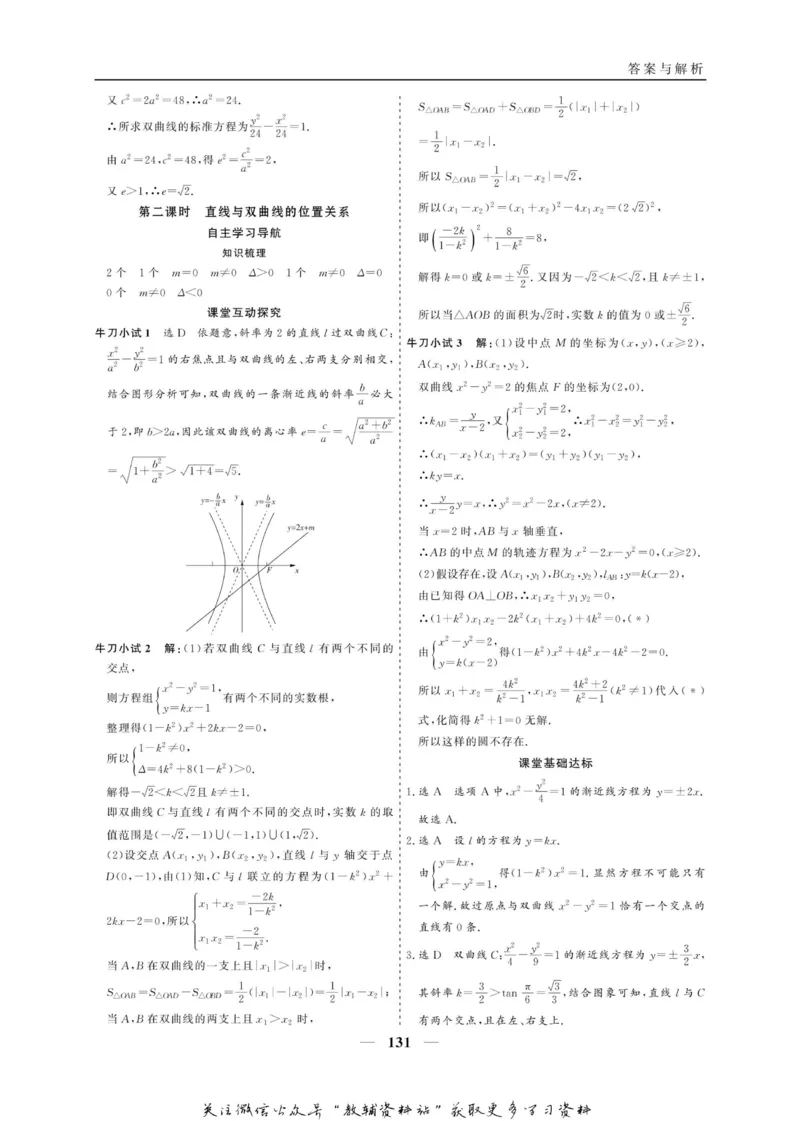 答案与解析
又 c²=2a²=48,∴a²=24.
∴所求双曲线的标准方程为 y²/24 - x²/24 =1.
由 a²=24,c²=48,得 e²= c²/a² =2,
又 e>1,∴e=√2.
第二课时 直线与双曲线的位置关系
自主学习导航
知识梳理
2个 1个 m=0 m≠0 Δ>0 1个 m≠0 Δ=0
0个 m≠0 Δ<0
课堂互动探究
牛刀小试1 选D 依题意,斜率为2的直线l过双曲线C:
x²/a² - y²/b² =1的右焦点且与双曲线的左、右两支分别相交,
结合图形分析可知,双曲线的一条渐近线的斜率 b/a 必大
于2,即b>2a,因此该双曲线的离心率 e= c/a = √((a²+b²)/a²)
= √(1+b²/a²) > √(1+4) =√5.
y=-b/a x y y=b/a x
y=2x+m
O F x
牛刀小试2 解:(1)若双曲线C与直线l有两个不同的
交点,
则方程组{x²-y²=1, y=kx-1 有两个不同的实数根,
整理得(1-k²)x²+2kx-2=0,
所以{1-k²≠0, Δ=4k²+8(1-k²)>0.
解得-√2<k<√2且k≠±1.
即双曲线C与直线l有两个不同的交点时,实数k的取
值范围是(-√2,-1)∪(-1,1)∪(1,√2).
(2)设交点A(x₁,y₁),B(x₂,y₂),直线l与y轴交于点
D(0,-1),由(1)知,C与l联立的方程为(1-k²)x²+
2kx-2=0,所以{x₁+x₂= -2k/(1-k²), x₁x₂= -2/(1-k²).
当A,B在双曲线的一支上且|x₁|>|x₂|时,
S△OAB=S△OAD-S△OBD= 1/2 (|x₁|-|x₂|)= 1/2 |x₁-x₂|;
当A,B在双曲线的两支上且x₁>x₂时,
S△OAB=S△OAD+S△OBD= 1/2 (|x₁|+|x₂|)
= 1/2 |x₁-x₂|.
所以S△OAB= 1/2 |x₁-x₂|=√2,
所以(x₁-x₂)²=(x₁+x₂)²-4x₁x₂=(2√2)²,
即(-2k/(1-k²))²+ 8/(1-k²) =8,
解得k=0或k=± √6/2 .又因为-√2<k<√2,且k≠±1,
所以当△AOB的面积为√2时,实数k的值为0或± √6/2 .
牛刀小试3 解:(1)设中点M的坐标为(x,y),(x≥2),
A(x₁,y₁),B(x₂,y₂).
双曲线x²-y²=2的焦点F的坐标为(2,0).
∴k_AB= y/(x-2) ,又{x₁²-y₁²=2, x₂²-y₂²=2, ∴x₁²-x₂²=y₁²-y₂²,
∴(x₁-x₂)(x₁+x₂)=(y₁+y₂)(y₁-y₂),
∴ky=x.
∴ y/(x-2) y=x,∴y²=x²-2x,(x≠2).
当x=2时,AB与x轴垂直,
∴AB的中点M的轨迹方程为x²-2x-y²=0,(x≥2).
(2)假设存在,设A(x₁,y₁),B(x₂,y₂),l_AB:y=k(x-2),
由已知得OA⊥OB,∴x₁x₂+y₁y₂=0,
∴(1+k²)x₁x₂-2k²(x₁+x₂)+4k²=0,(*)
由{x²-y²=2, y=k(x-2) 得(1-k²)x²+4k²x-4k²-2=0.
所以x₁+x₂= 4k²/(k²-1) ,x₁x₂= (4k²+2)/(k²-1) (k²≠1)代入(*)
式,化简得k²+1=0无解.
所以这样的圆不存在.
课堂基础达标
1.选A 选项A中,x²- y²/4 =1的渐近线方程为y=±2x.
故选A.
2.选A 设l的方程为y=kx.
由{y=kx, x²-y²=1, 得(1-k²)x²=1.显然方程不可能只有
一个解.故过原点与双曲线x²-y²=1恰有一个交点的
直线有0条.
3.选D 双曲线C: x²/4 - y²/9 =1的渐近线方程为y=± 3/2 x,
其斜率k= 3/2 >tan π/6 = √3/3 ,结合图象可知,直线l与C
有两个交点,且在左、右支上.
— 131 —
关注微信公众号“教辅资料站”获取更多学习资料